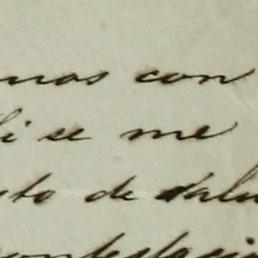 mas con
li se me
to de salu
contestaci